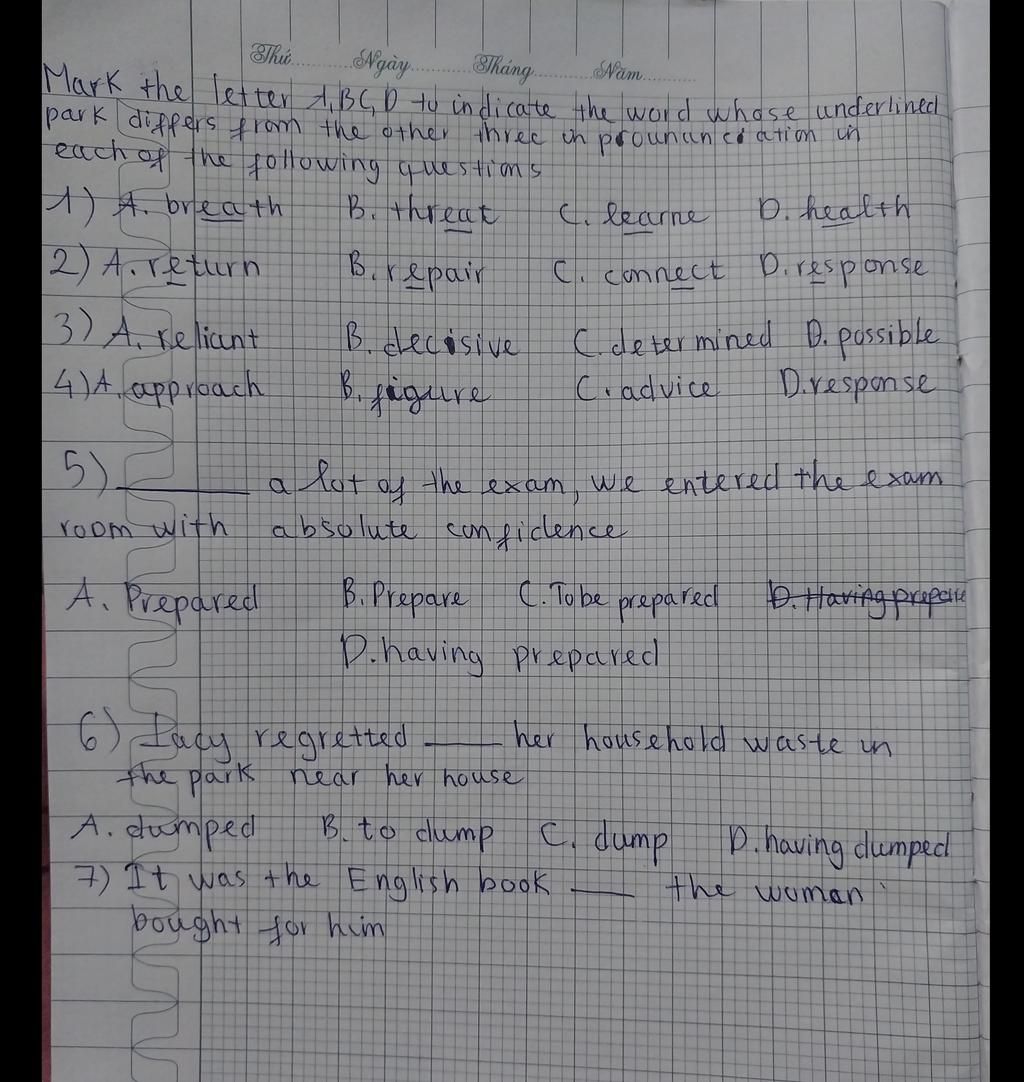 Thứ Ngày Tháng Năm
Mark the letter A,B,C,D to indicate the word whose underlined
park differs from the other three in prounanciation in
each of the following questions
1) A. breath B. threat C. learne D. health
2) A. return B. repair C. connect D. response
3) A. reliant B. decisive C. determined D. possible
4) A. approach B. figure C. advice D. response
5) ______ a lot of the exam, we entered the exam
room with absolute confidence
A. Prepared B. Prepare C. To be prepared D. Having prepare
D. having prepared
6) regretted ____ her household waste in
the park near her house
A. dumped B. to dump C. dump D. having dumped
7) It was the English book ___ the woman
bought for him